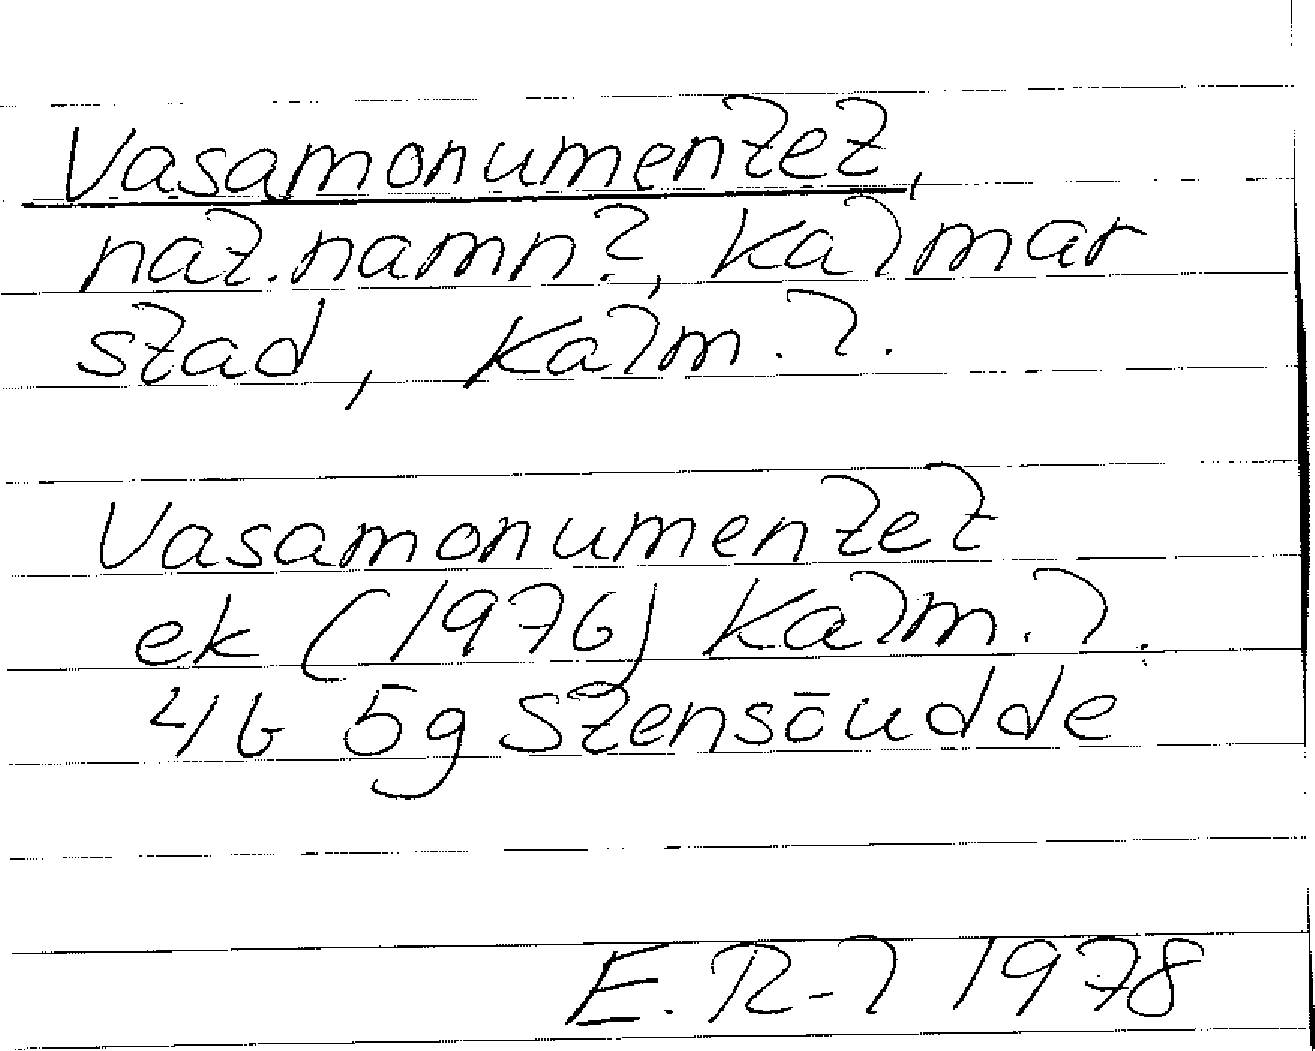 Vasamonumentet,
nat.namn?, Kalmar
stad, Kalm. l.
Vasamonumentet
ek (1976) Kalm. l.
4G 5g Stensöudde
E. R-l 1978